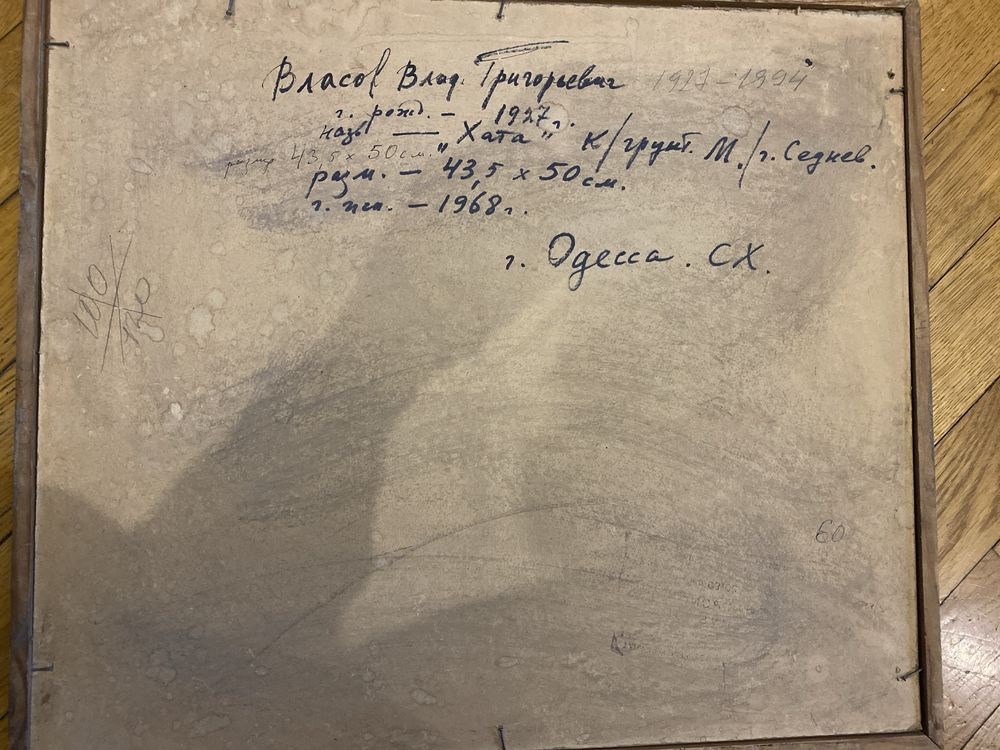 Власов Влад. Григорьевич 1927-1994
г. рожд. - 1927 г.
назв — "Хата" К/грунт. М./г. Седнев.
размер 43,5 x 50 см.
разм. - 43,5 x 50 см.
г. исп. - 1968 г.
г. Одесса. СХ.
60